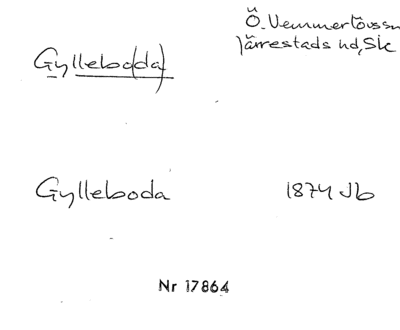 Gyllebo(da)
Ö. Vemmerlövs sn
Järrestads hd, Sk
Gylleboda 1874 Jb
Nr 17864